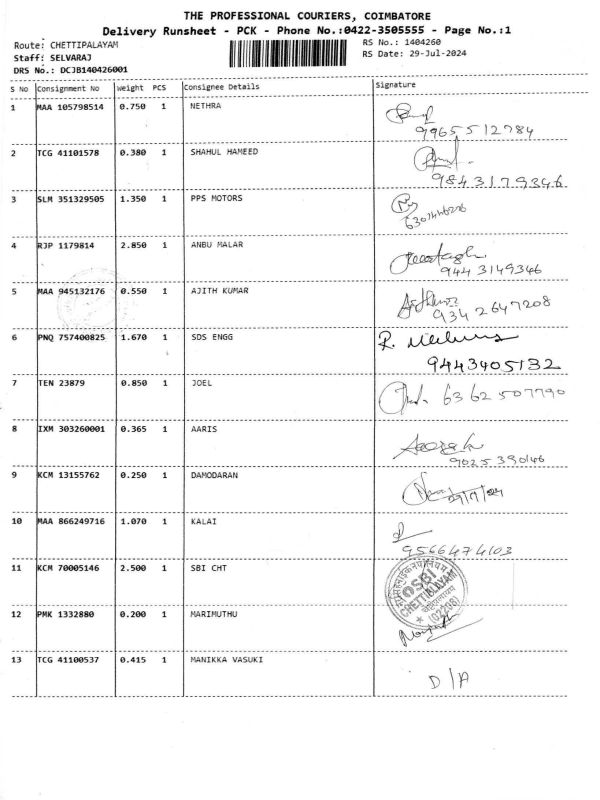 THE PROFESSIONAL COURIERS, COIMBATORE
Delivery Runsheet - PCK - Phone No.:0422-3505555 - Page No.:1
Route: CHETTIPALAYAM
Staff: SELVARAJ
DRS No.: DCJB140426001
RS No.: 1404260
RS Date: 29-Jul-2024
S No Consignment No Weight PCS Consignee Details Signature
1 MAA 105798514 0.750 1 NETHRA
9965512784
2 TCG 41101578 0.380 1 SHAHUL HAMEED
9843179346
3 SLM 351329505 1.350 1 PPS MOTORS
4 RJP 1179814 2.850 1 ANBU MALAR
9443149346
5 MAA 945132176 0.550 1 AJITH KUMAR
9342647208
6 PNQ 757400825 1.670 1 SDS ENGG
R.
9443405132
7 TEN 23879 0.850 1 JOEL
6362507790
8 IXM 303260001 0.365 1 AARIS
9025390146
9 KCM 13155762 0.250 1 DAMODARAN
29/7/24
10 MAA 866249716 1.070 1 KALAI
9566474103
11 KCM 70005146 2.500 1 SBI CHT
SBI
CHETTIPALAYAM
(02206)
12 PMK 1332880 0.200 1 MARIMUTHU
13 TCG 41100537 0.415 1 MANIKKA VASUKI
D/A